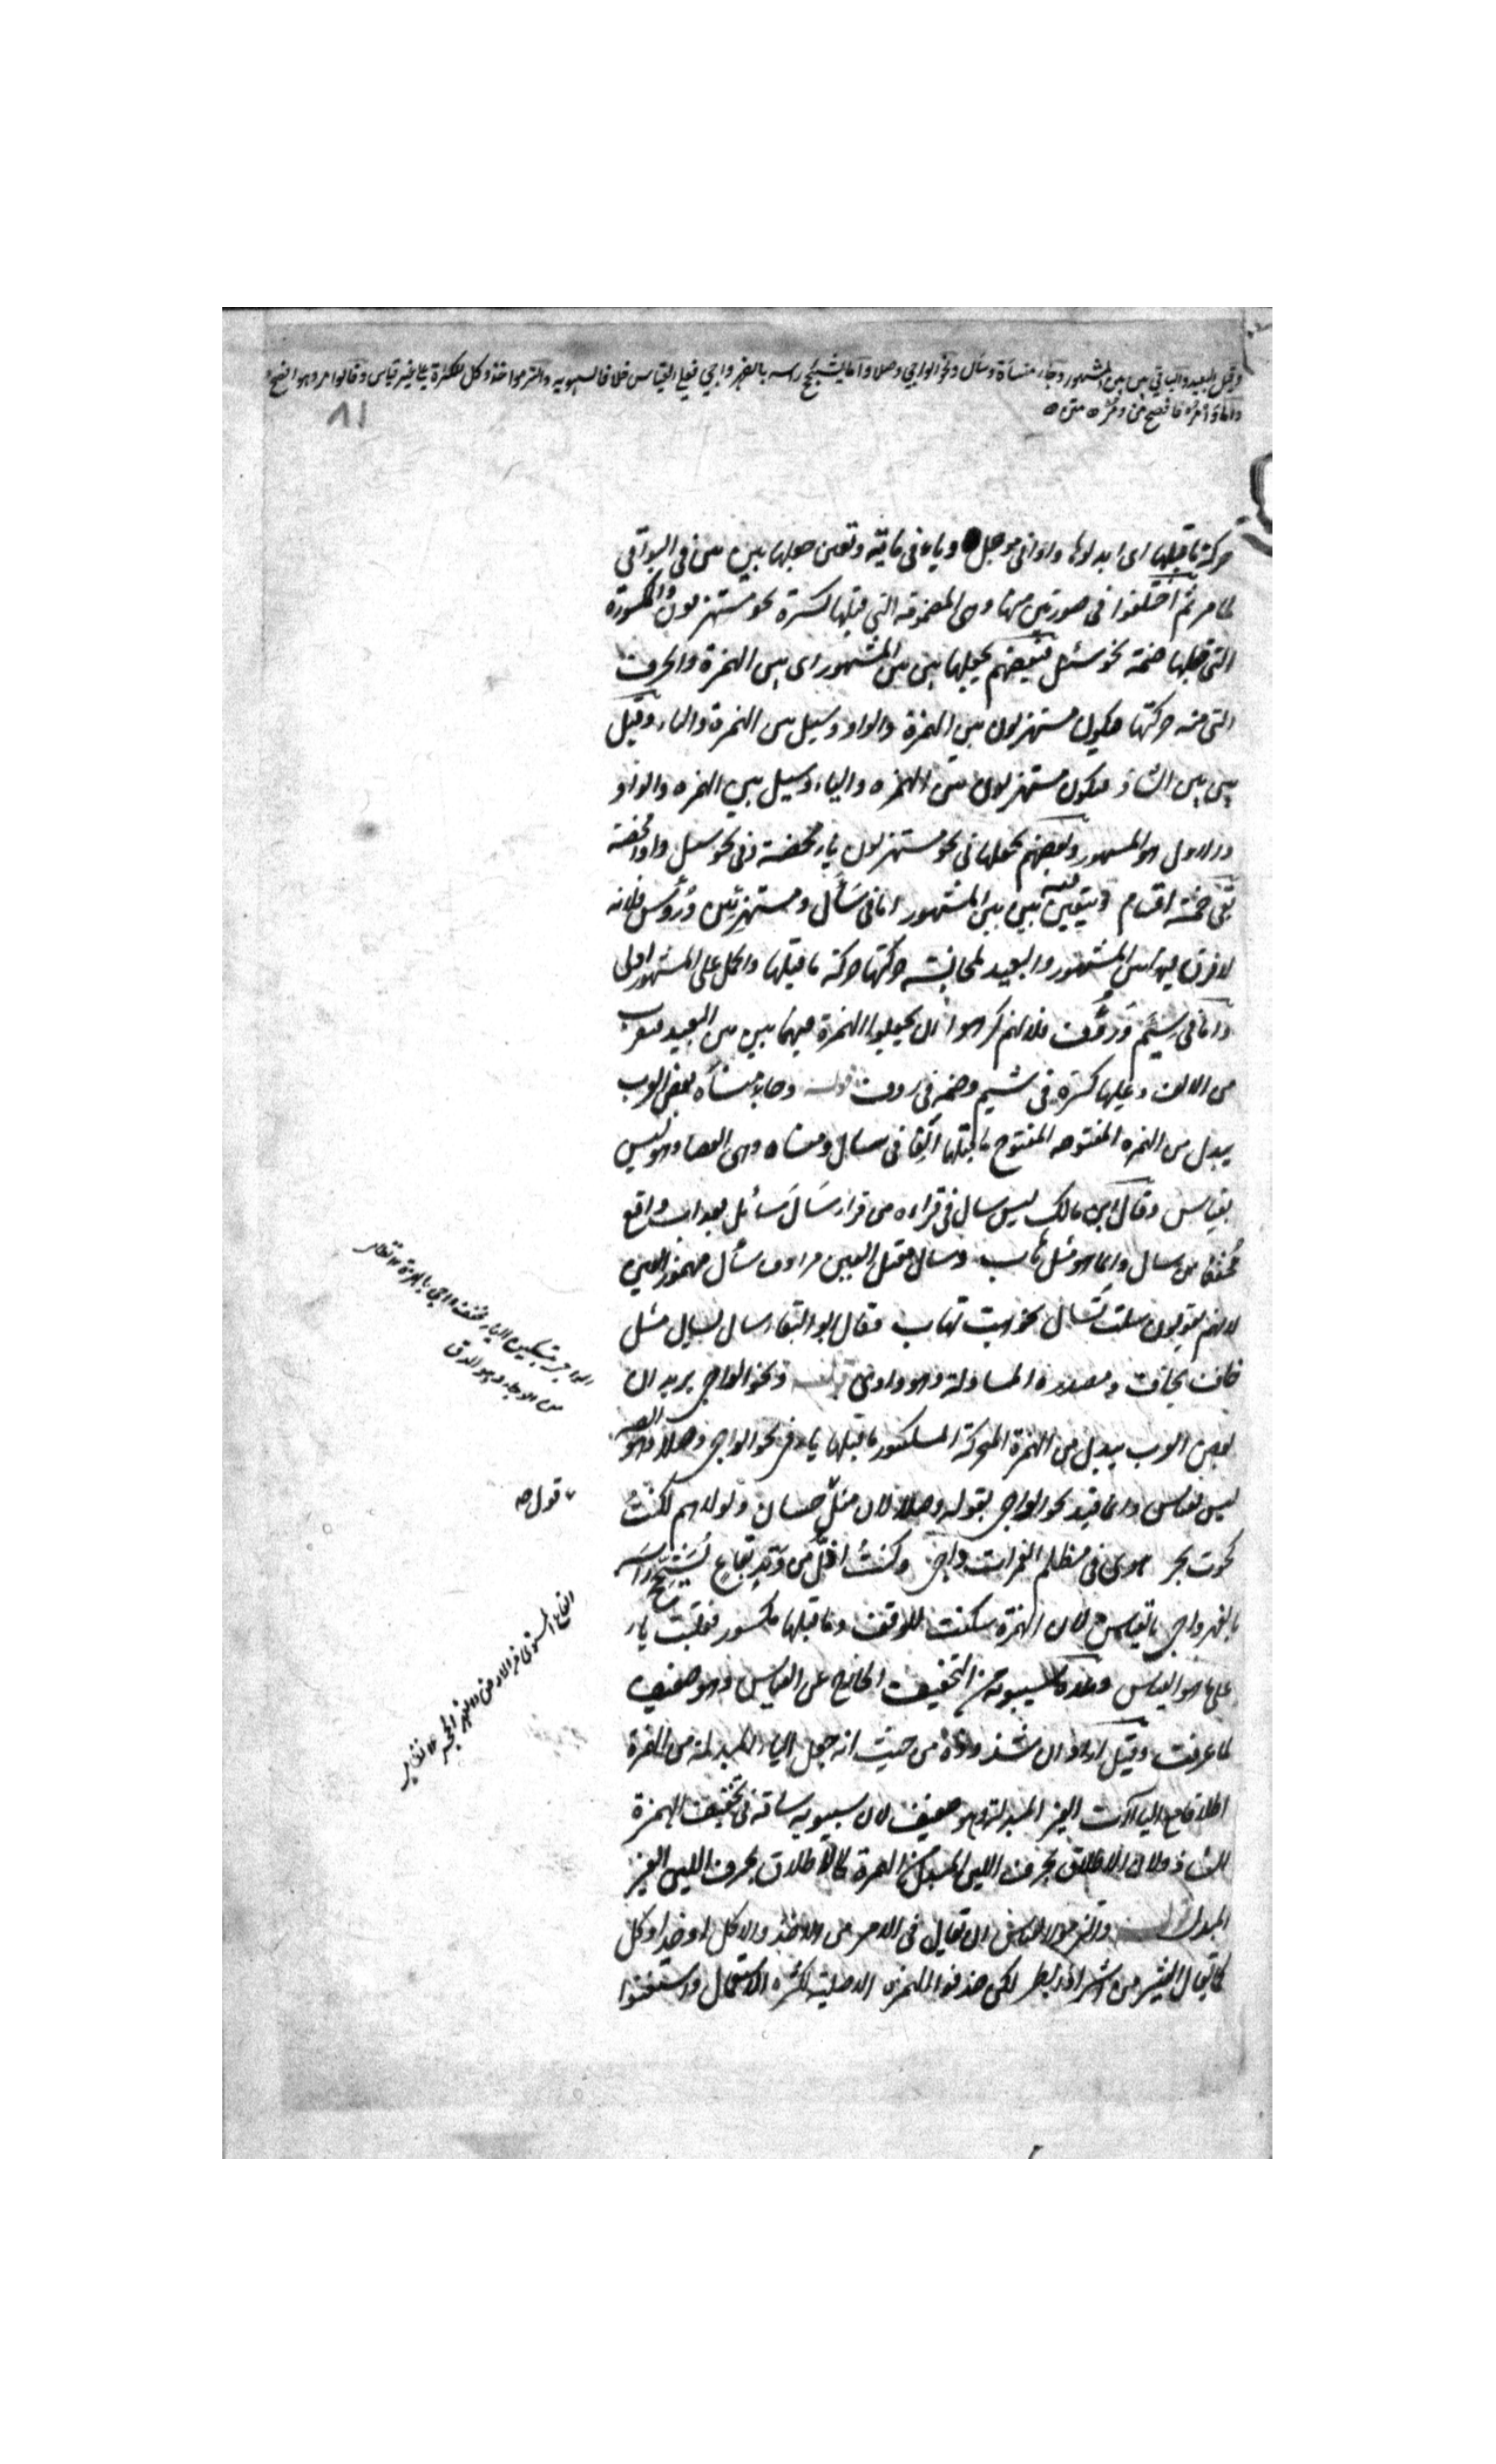 وقيل البعيد والباقي بين بين المشهور وجاء منسأة وسأل ونحو الواجي وصلا وأما يشجج رأسه بالفهر واجي فعلى القياس خلافا لسيبويه والتزموا خذ وكل للكثرة على غير قياس وقالوا مر وهو افصح
واما وأمر فافصح من ومر
٨١
حركة ما قبلها اى ابدلوها واوا فى موجل وياء فى ماية وتعين جعلها بين بين فى البواقى
لما مر ثم اختلفوا فى صورتين منها وهى المضمومة التى قبلها كسرة نحو مستهزءون والمكسورة
التى قبلها ضمة نحو سئل فبعضهم يجعلها بين بين المشهور اى بين الهمزة والحرف
التى منه حركتها فيكون مستهزءون بين الهمزة والواو وسيل بين الهمزة والياء وقيل
بين بين الشاذ فيكون مستهزءون بين الهمزه والياء وسيل بين الهمزه والواو
والاول هو المشهور وبعضهم يجعلها فى نحو مستهزءون ياء محضة وفى نحو سئل واوا محضة
بقى خمسة اقسام ويتعين فيه بين بين المشهور اما فى سَأَل ومستهزئين ورُؤُس فلانه
لا فرق بين المشهور والبعيد لمجانسة حركتها حركة ما قبلها والحمل على المشهور اولى
واما فى سَئِمَ ورَؤُف فلانهم كرهوا ان يجعلوا الهمزة فيهما بين بين البعيد فتقرب
من الالف وعليها كسرة فى سئيم وضمة فى روف قوله وجاء منسأه بعض العرب
يبدل من الهمزه المفتوحه المفتوح ما قبلها الفا فى سال ومنساه وهى العصا وهو ليس
بقياس وقال ابن مالك ليس سال فى قراءه من قراء سَالَ سَائل بعذاب واقع
مُخففا من سأل وانما هو مثل هاب وسال معتل العين مرادف سأل مهموز العين
لانهم يقولون سلت تسال نحو هبت تهاب فقال ابو البقاء سال يسال مثل
خاف يخاف ومصدره المساولة وهو واوى قوله ونحو الواجى يريد ان
بعض العرب يبدل من الهمزة المتحركة المكسور ما قبلها ياء فى نحو الواجى وصلا وهو
ليس بقياس وانما قيد نحو الواجى بقوله وصلا لان مثل حسان ولولاهم لكنتُ
كحوت بحر هوى فى مظلم الغمرات واجى وكنتُ اذل من وتد بقاع يُشجج راسه
بالفهر واجى بالقياس لان الهمزة سكنت للوقف وما قبلها مكسور فقلبت ياء
على ما هو القياس وعده سيبويه من التخفيف الخارج عن القياس وهو ضعيف
لما عرفت وقيل اراد ان شذوذه من حيث انه جعل الياء المبدلة من الهمزة
اطلاقا مع الياآت الغير المبدلة وهو ضعيف لان سيبويه ساقه فى تخفيف الهمزة
الشاذ ولان الاطلاق بحرف اللين المبدل من الهمزة كالاطلاق بحرف اللين الغير
المبدل والتزموا القياس ان يقال فى الامر من الاخذ والاكل اوخذ اوكل
كما يقال من اشر لكن حذفوا الهمزه الاصلية لكثره الاستعمال واستغنوا
قوله